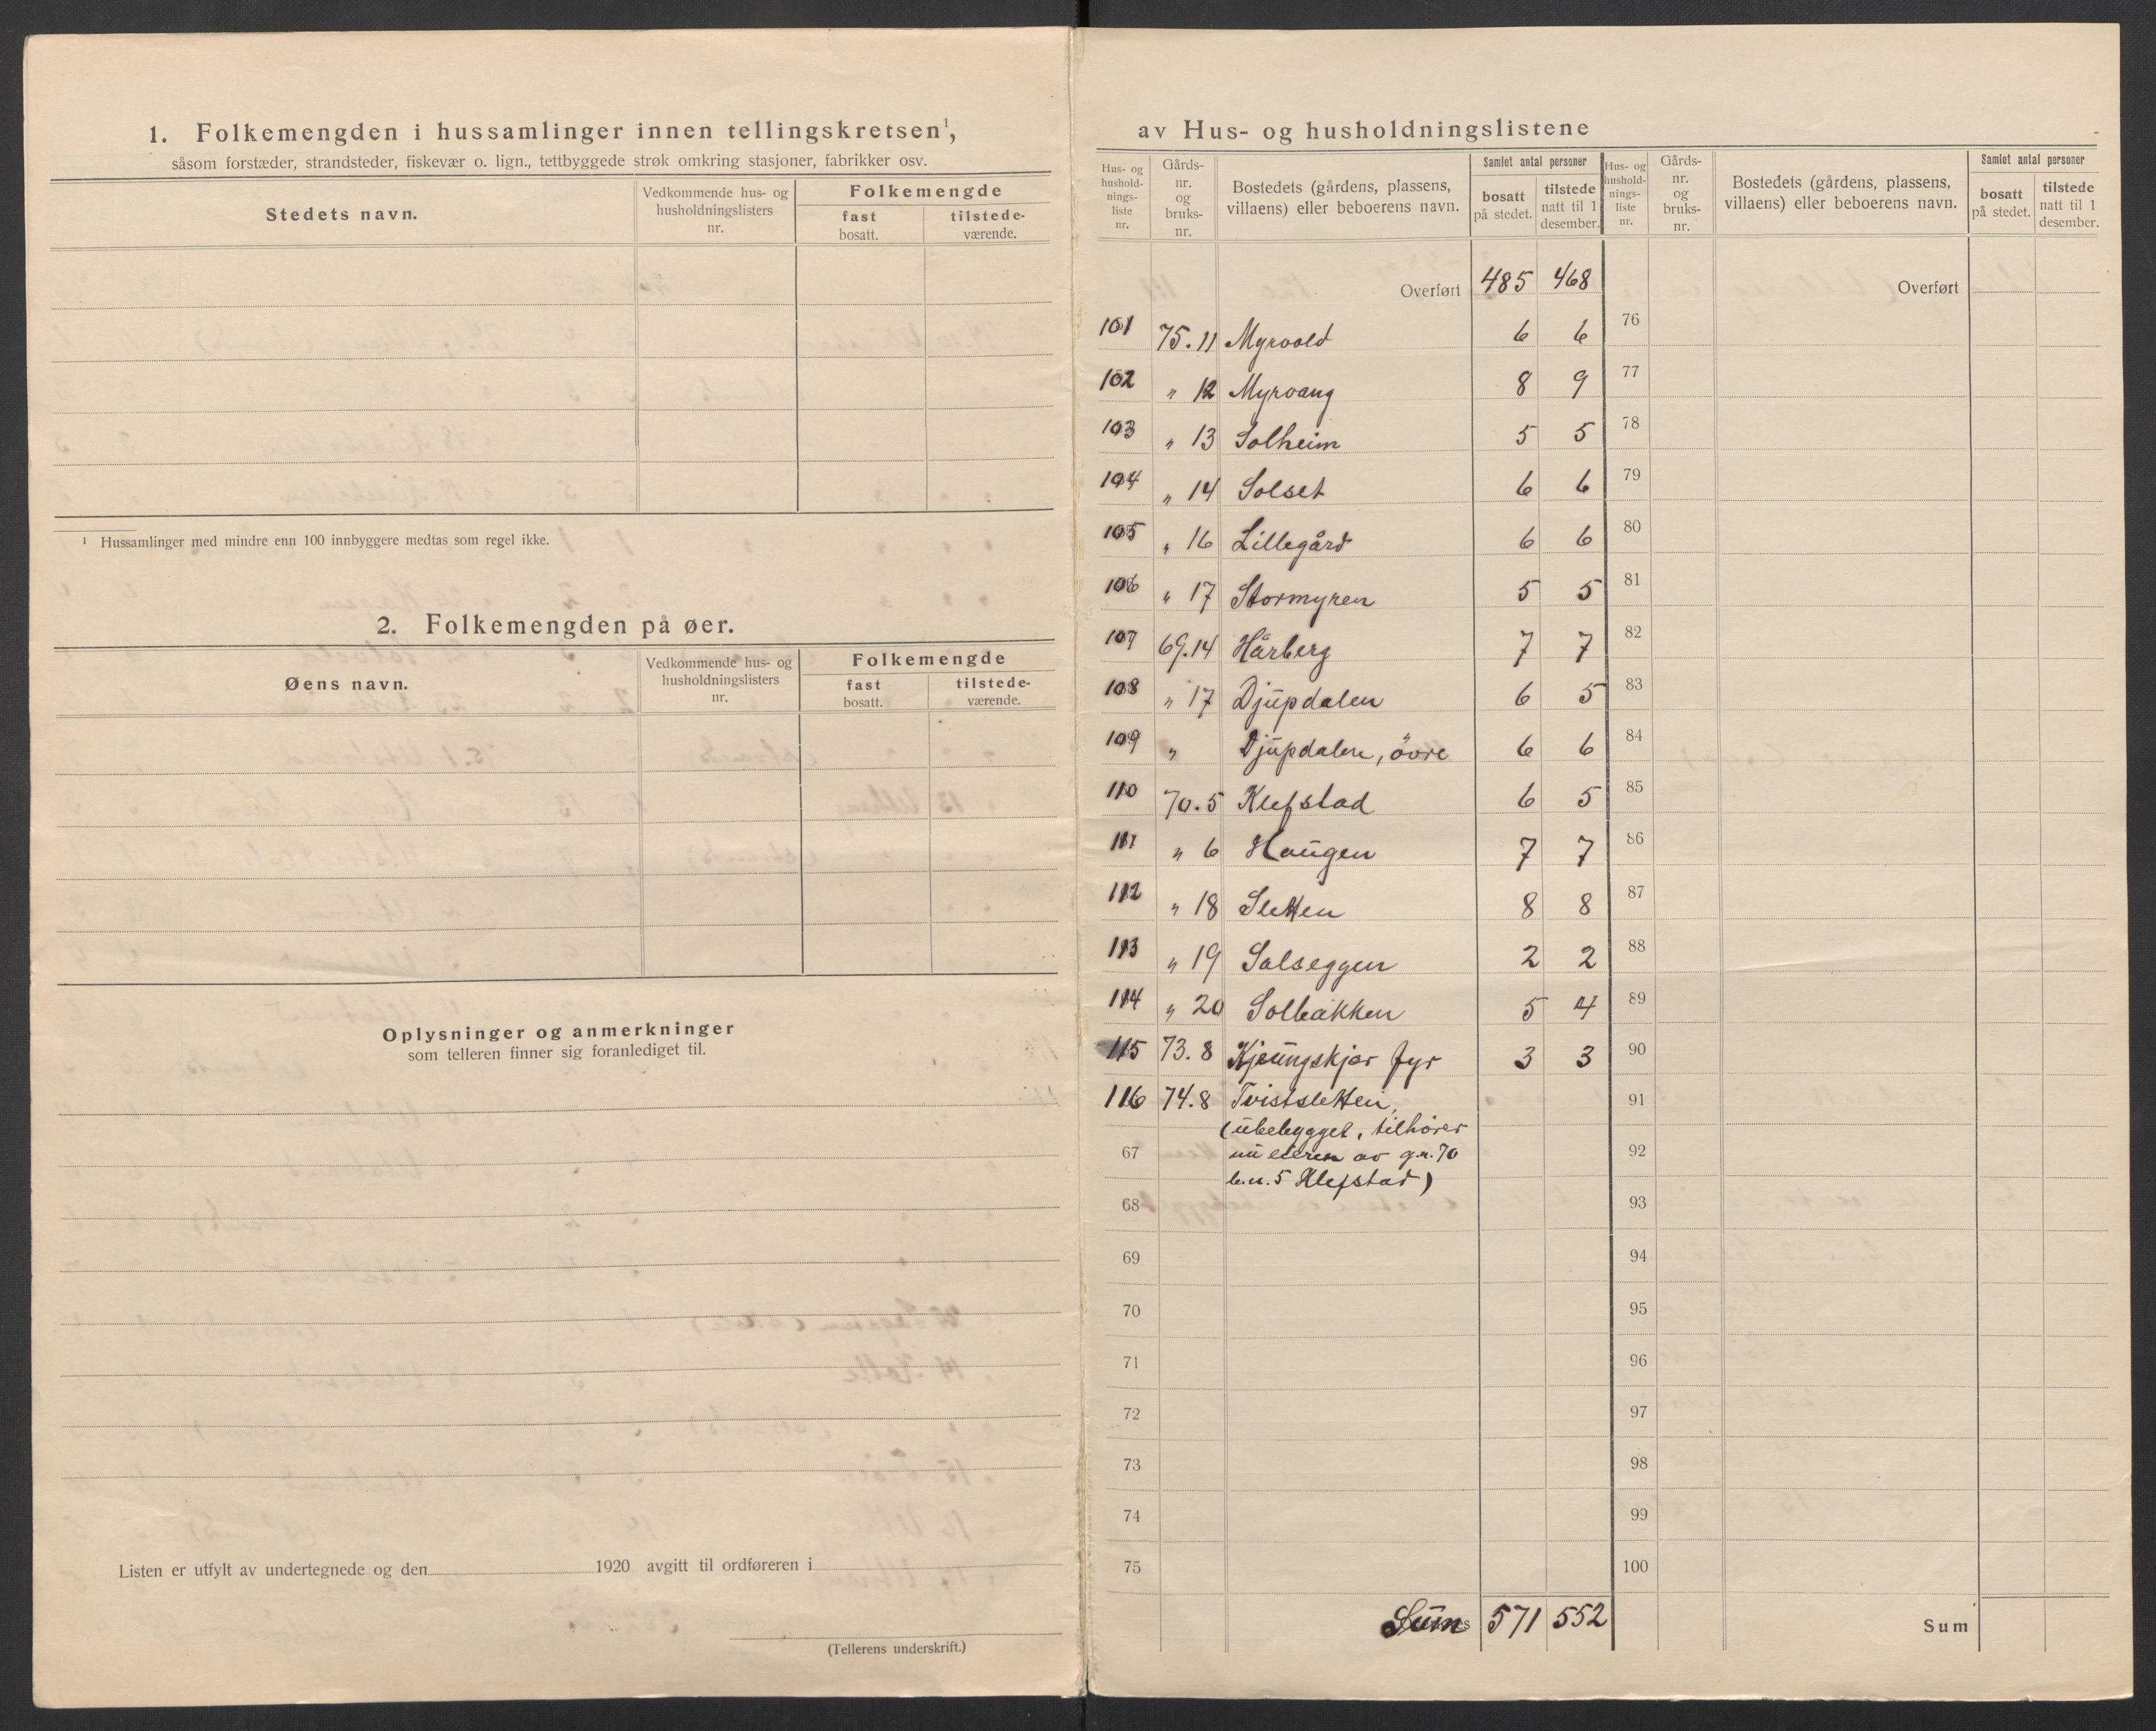 1. Folkemengden i hussamlinger innen tellingskretsen¹,
såsom forstæder, strandsteder, fiskevær o. lign., tettbyggede strøk omkring stasjoner, fabrikker osv.
Stedets navn.
Vedkommende hus- og
husholdningslisters
nr.
Folkemengde
fast
bosatt.
tilstede-
værende.
¹ Hussamlinger med mindre enn 100 innbyggere medtas som regel ikke.
2. Folkemengden på øer.
Øens navn.
Vedkommende hus- og
husholdningslisters
nr.
Folkemengde
fast
bosatt.
tilstede-
værende.
Oplysninger og anmerkninger
som telleren finner sig foranlediget til.
Listen er utfylt av undertegnede og den 1920 avgitt til ordføreren i
(Tellerens underskrift.)
av Hus- og husholdningslistene
Hus- og
hushold-
nings-
liste
nr.
Gårds-
nr.
og
bruks-
nr.
Bostedets (gårdens, plassens,
villaens) eller beboerens navn.
Samlet antal personer
bosatt
på stedet.
tilstede
natt til 1
desember.
Hus- og
hushold-
nings-
liste
nr.
Gårds-
nr.
og
bruks-
nr.
Bostedets (gårdens, plassens,
villaens) eller beboerens navn.
Samlet antal personer
bosatt
på stedet.
tilstede
natt til 1
desember.
Overført 485 468
101 75.11 Myrvold 6 6
102 " 12 Myrvang 8 9
103 " 13 Solheim 5 5
104 " 14 Solset 6 6
105 " 16 Lillegård 6 6
106 " 17 Stormyren 5 5
107 69.14 Hårberg 7 7
108 " 17 Djupdalen 6 5
109 " Djupdalen, övre 6 6
110 70.5 Klefstad 6 5
111 " 6 Haugen 7 7
112 " 18 Sletten 8 8
113 " 19 Solseggen 2 2
114 " 20 Solbakken 5 4
115 73.8 Kjeungskjær fyr 3 3
116 74.8 Tvistsletten,
(ubebygget, tilhører
67 nu eieren av g.n. 70
b.n. 5 Klefstad)
68
69
70
71
72
73
74
75
Sum 571 552
Overført
76
77
78
79
80
81
82
83
84
85
86
87
88
89
90
91
92
93
94
95
96
97
98
99
100
Sum